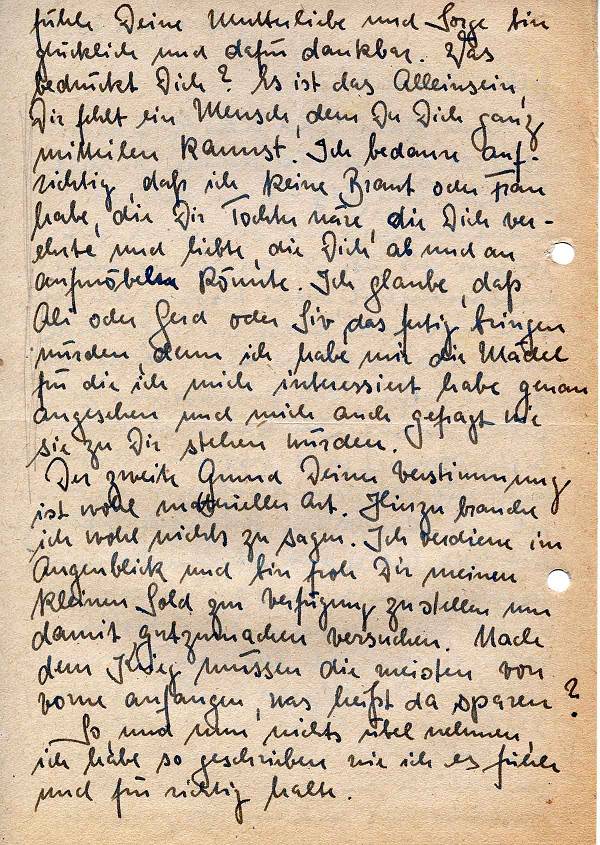 fühle Deine Mutterliebe und Sorge bin
glücklich und dafür dankbar. Was
bedrückt Dich? Es ist das Alleinsein,
Dir fehlt ein Mensch, dem Du Dich ganz
mitteilen kannst. Ich bedaure auf-
richtig, daß ich keine Braut oder Frau
habe, die Dir Tochter wäre, die Dich ver-
ehrte und liebte, die Dich ab und an
aufmöbeln könnte. Ich glaube, daß
Ali oder Gerd oder Siv das fertig bringen
würden, denn ich habe mir die Mädel
für die ich mich interessiert habe genau
angesehen und mich auch gefragt wie
sie zu Dir stehen würden.
Der zweite Grund Deiner Verstimmung
ist wohl materieller Art. Hinzu brauche
ich wohl nichts zu sagen. Ich verdiene im
Augenblick und bin froh Dir meinen
kleinen Sold zur Verfügung zu stellen um
damit gutzumachen versuchen. Nach
dem Krieg müssen die meisten von
vorne anfangen, was heißt da sparen?
So, und nun nichts übel nehmen,
ich habe so geschrieben wie ich es fühle
und für richtig halte.